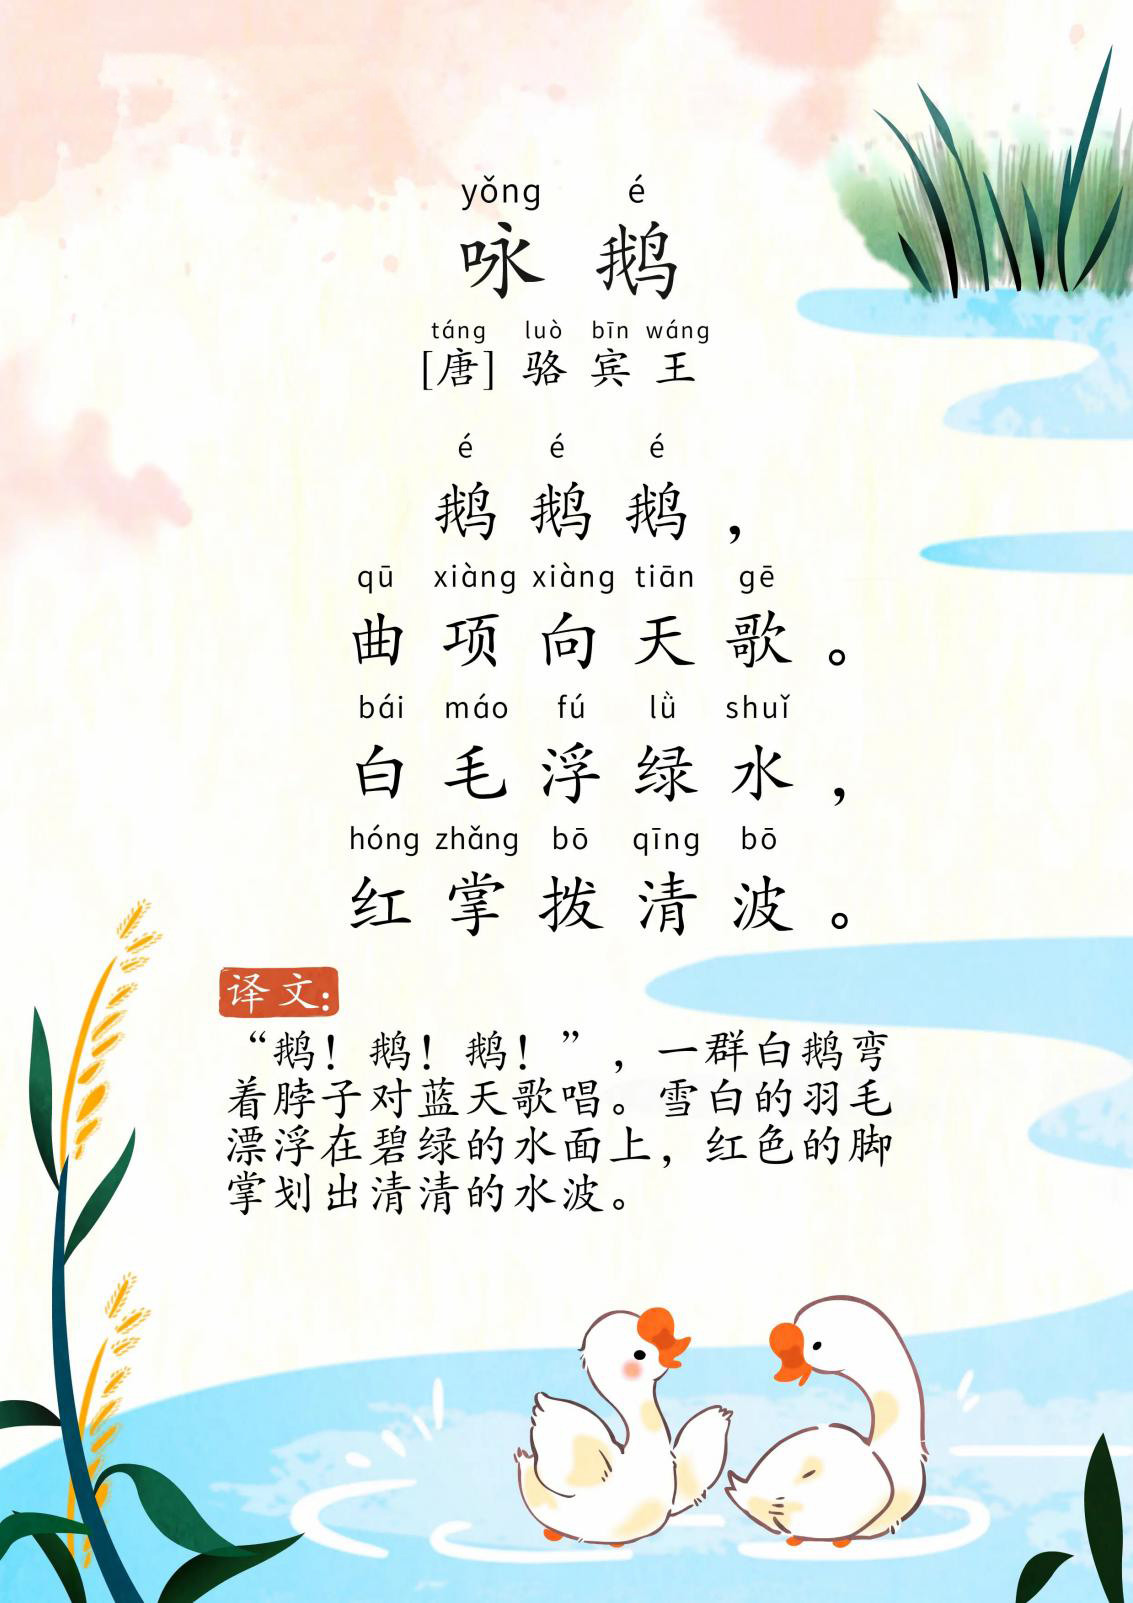 yǒng é
咏 鹅
táng luò bīn wáng
[唐] 骆 宾 王
é é é
鹅 鹅 鹅 ，
qū xiàng xiàng tiān gē
曲 项 向 天 歌 。
bái máo fú lǜ shuǐ
白 毛 浮 绿 水 ，
hóng zhǎng bō qīng bō
红 掌 拨 清 波 。
译文：
“鹅！鹅！鹅！”，一群白鹅弯
着脖子对蓝天歌唱。雪白的羽毛
漂浮在碧绿的水面上，红色的脚
掌划出清清的水波。